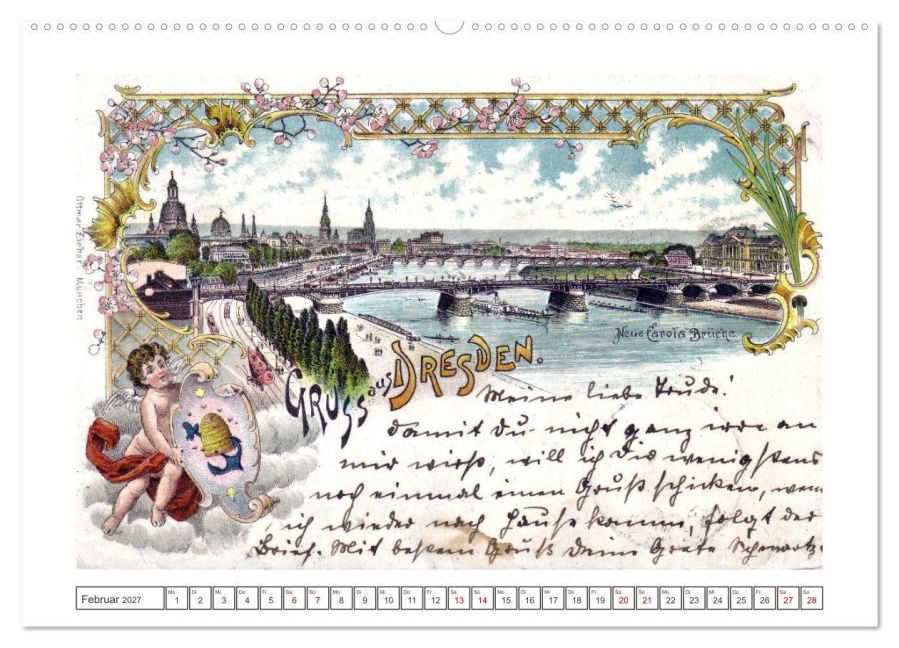 Ottmar Zieher, München
Neue Carola Brücke.
GRUSS aus DRESDEN.
Meine liebe Trude!
damit du nicht ganz irre an
mir wirst, will ich Dir wenigstens
noch einmal einen Gruß schicken, wenn
ich wieder nach Hause komme, folgt der
Brief. Mit bestem Gruß Deine Grete Schwartz.
Februar 2027
Mo Di Mi Do Fr Sa So Mo Di Mi Do Fr Sa So Mo Di Mi Do Fr Sa So Mo Di Mi Do Fr Sa So
1 2 3 4 5 6 7 8 9 10 11 12 13 14 15 16 17 18 19 20 21 22 23 24 25 26 27 28